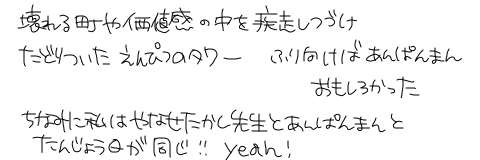 壊れる町や価値感の中を疾走しつづけ
たどりついた えんぴつのタワー ふり向けばあんぱんまん
おもしろかった
ちなみに私はやなせたかし先生とあんぱんまんと
たんじょう日が同じ!! yeah!